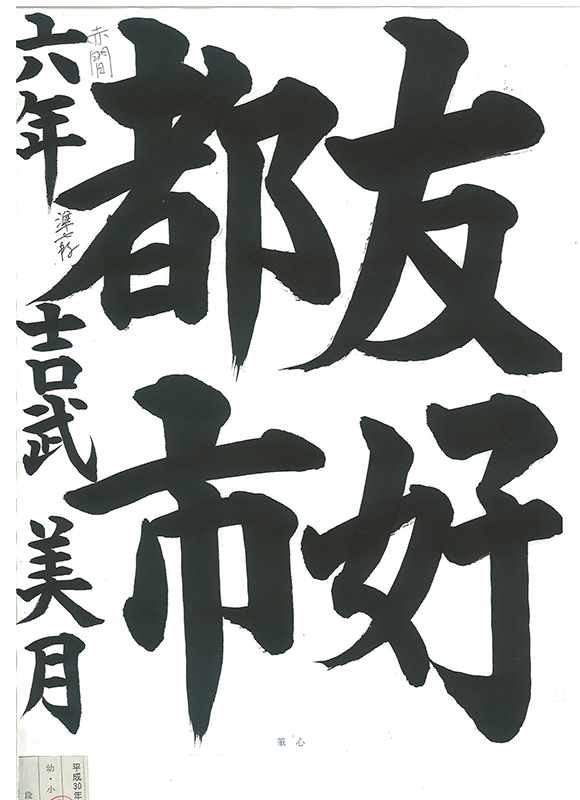 友好
都市
六年 吉武 美月
赤間
準七段
心筆
平成30年
幼・小
段